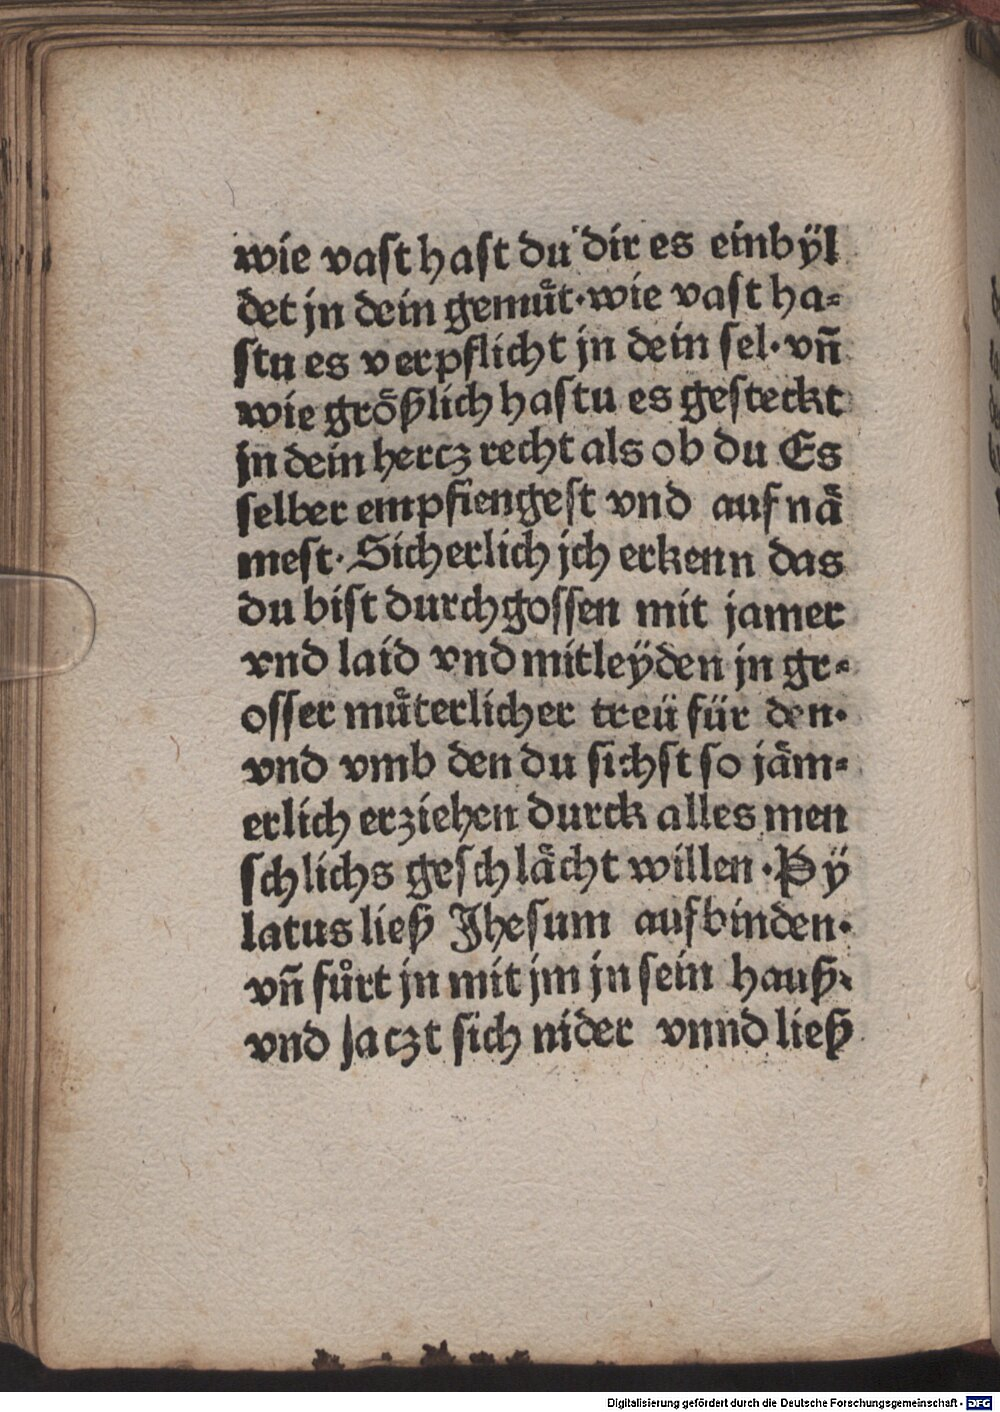 wie vast hast du dir es einbÿl
det jn dein gemuͤt·wie vast ha⸗
stu es verpflicht jn dein sel·vn̄
wie groͤßlich hastu es gesteckt
jn dein hercz recht als ob du Es
selber empfiengest vnd aufnaͤ
mest·Sicherlich jch erkenn das
du bist durchgossen mit jamer
vnd laid vnd mitleÿden jn gr⸗
osser muͤterlicher treü für den·
vnd vmb den du sichst so jaͤm⸗
erlich erziehen durck alles men
schlichs geschlaͤcht willen·Pÿ
latus ließ Jhesum aufbinden·
vn̄ fuͦrt jn mit jm jn sein hauß·
vnd saczt sich nider vnnd ließ
Digitalisierung gefördert durch die Deutsche Forschungsgemeinschaft - DFG